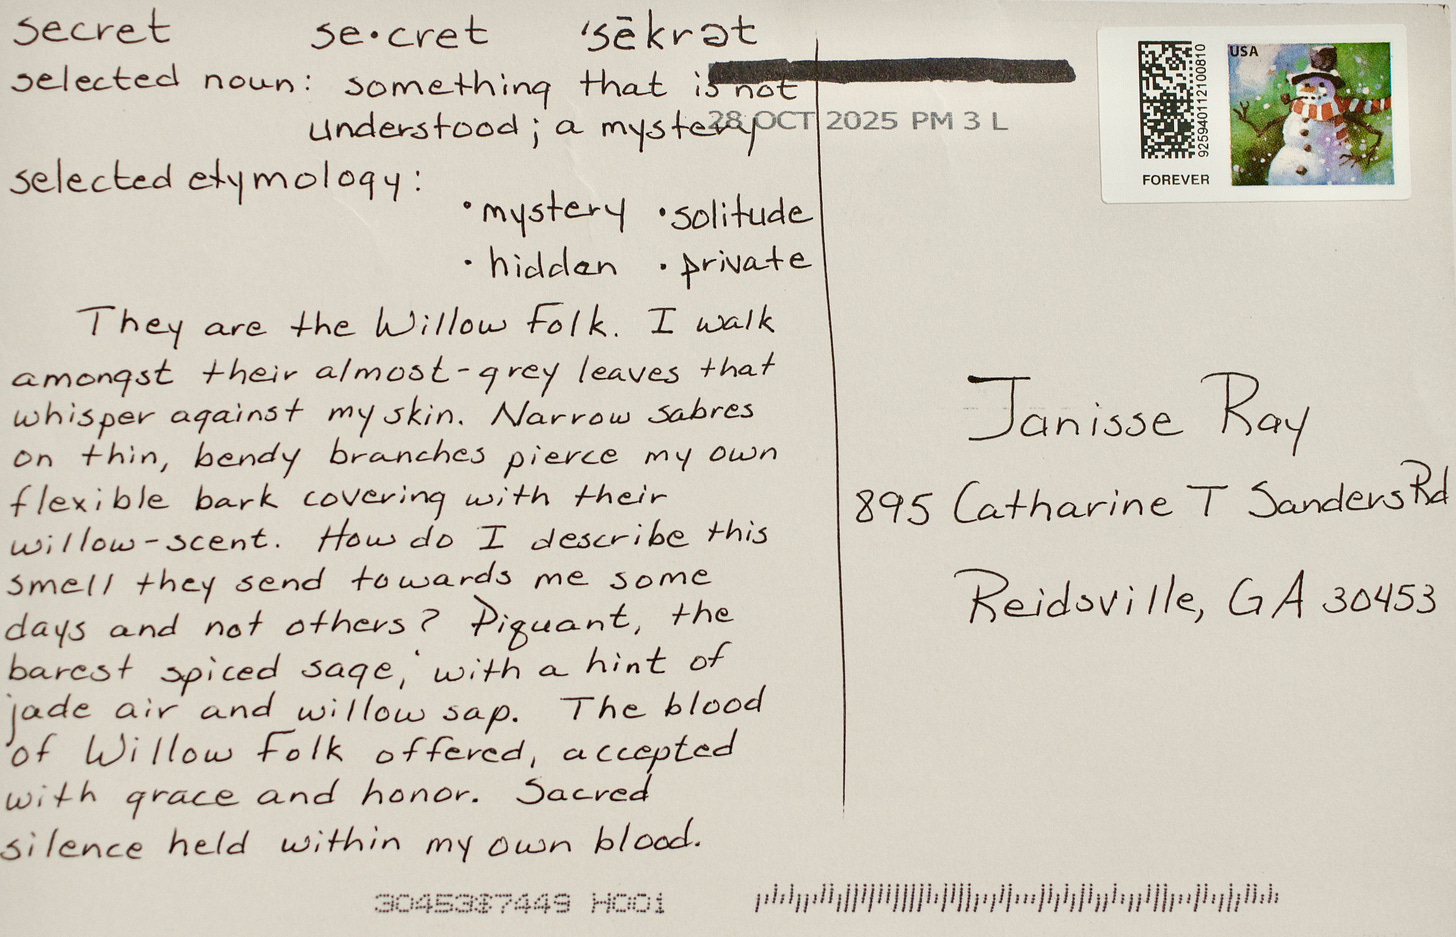 secret se•cret 'sēkrət
selected noun: something that is not
understood; a mystery
28 OCT 2025 PM 3 L
selected etymology:
• mystery • solitude
• hidden • private
They are the Willow Folk. I walk
amongst their almost-grey leaves that
whisper against my skin. Narrow sabres
on thin, bendy branches pierce my own
flexible bark covering with their
willow-scent. How do I describe this
smell they send towards me some
days and not others? Piquant, the
barest spiced sage, with a hint of
jade air and willow sap. The blood
of Willow Folk offered, accepted
with grace and honor. Sacred
silence held within my own blood.
USA
9259401121100810
FOREVER
Janisse Ray
895 Catharine T Sanders Rd
Reidsville, GA 30453
H001